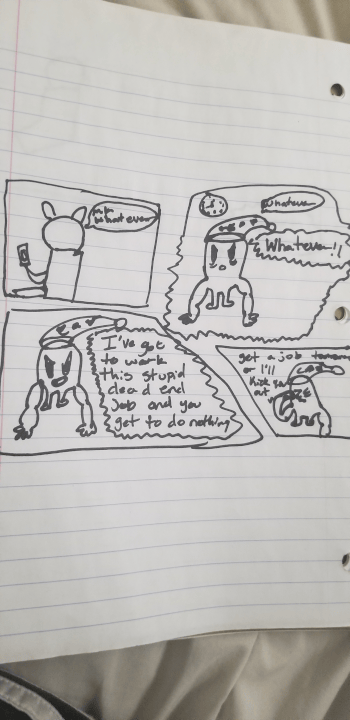 Whatever
Whatever
Whatever!!
EAT
I've got
to work
this stupid
dead end
Job and you
get to do nothing
get a job
or I'll
Kick
out